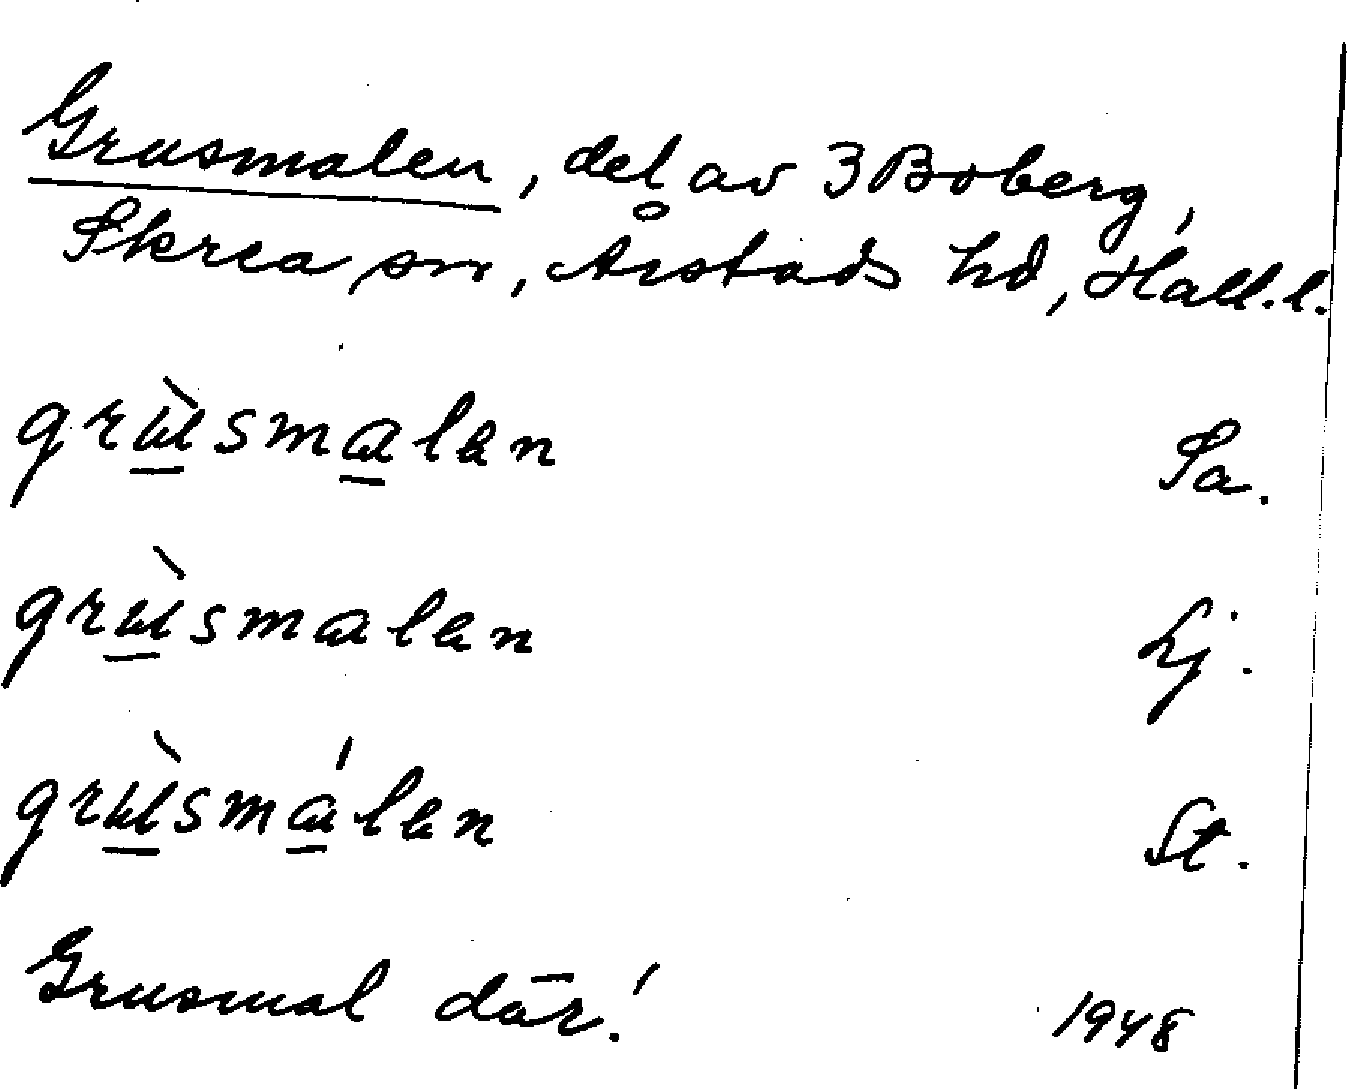 Grusmalen, del av 3 Boberg,
Skrea sn, Årstads hd, Hall.l.
grùsmalen Sa.
grùsmalen Lj.
grùsmálen St.
Grusmal där! 1948